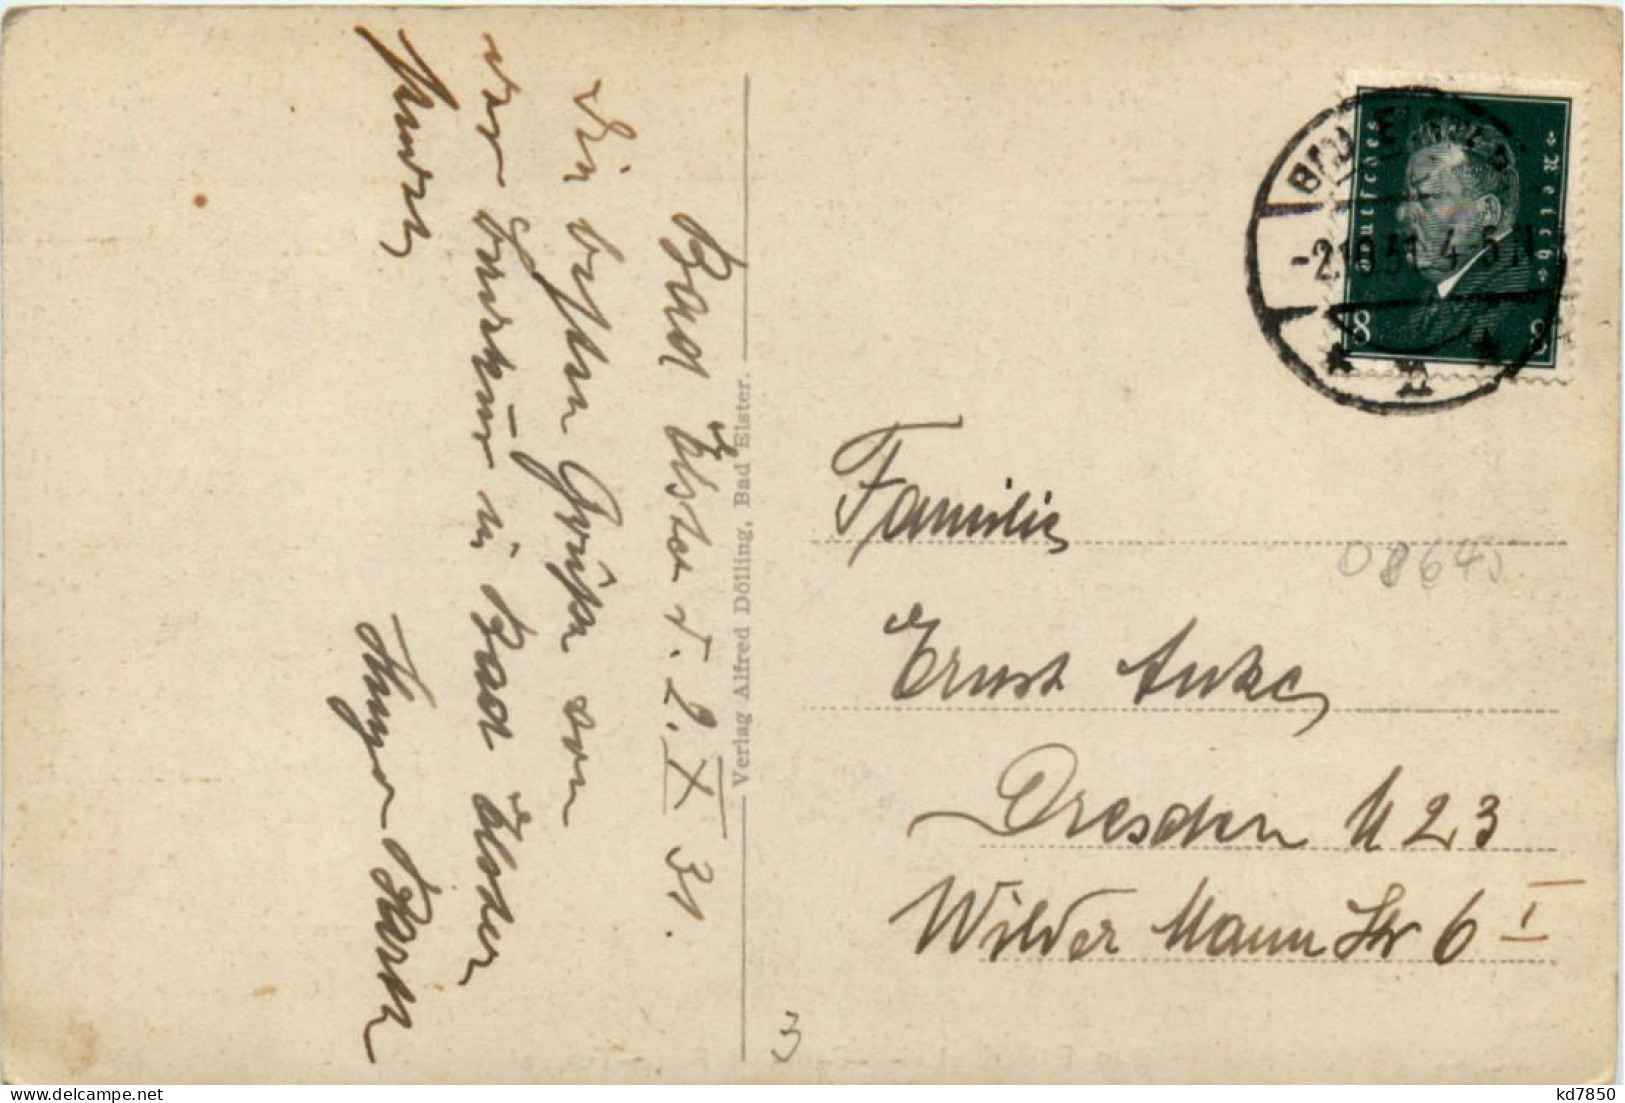 Bad Elster d. 2. X 31.
Die besten Grüße von
der Vorkur in Bad Elster
sendet
Hugo
Verlag Alfred Dölling, Bad Elster.
Deutsches Reich
8 8
BAD ELSTER
-2.10.31. 4-5 N
Familie
Ernst Anke
Dresden N 23
Wilder Mann Str 6 I
08645
3
kd7850